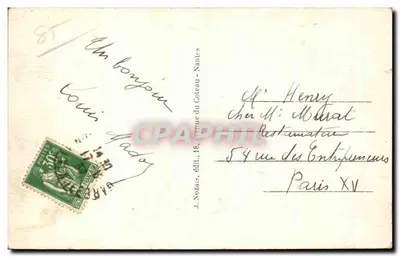 85
Un bonjour
Louis Madoz
J. Nozais, édit., 18, rue du Coteau - Nantes
Mr Henry
chez Mr Murat
Restaurateur
54 rue des Entrepreneurs
Paris XV
CPARAMA